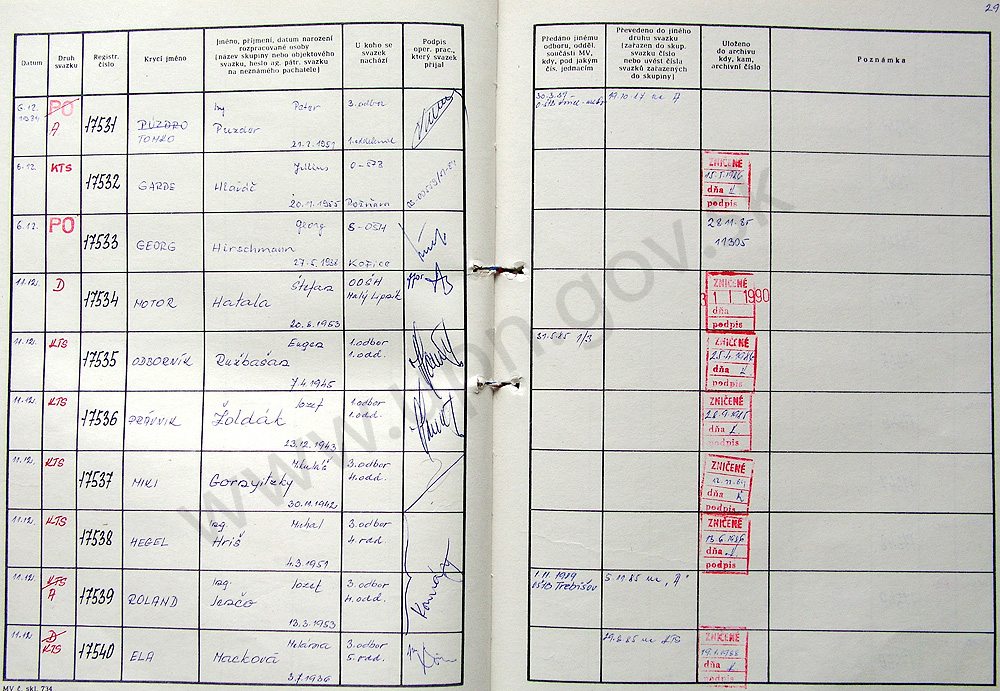 29
Datum
Druh
svazku
Registr.
číslo
Krycí jméno
Jméno, příjmení, datum narození
rozpracované osoby
(název skupiny nebo objektového
svazku, heslo ag. pátr. svazku
na neznámého pachatele)
U koho se
svazek
nachází
Podpis
oper. prac.,
který svazek
přijal
Předáno jinému
odboru, odděl.
součásti MV,
kdy, pod jakým
čís. jednacím
Převedeno do jiného
druhu svazku
(zařazen do skup.
svazku číslo
nebo uvést čísla
svazků zařazených
do skupiny)
Uloženo
do archivu
kdy, kam,
archivní číslo
Poznámka
6.12.
1984
PO
A
17531
PUZDRO
TOMKO
Ing
Peter
Puzdor
3. odbor
6.12.
KTS
17532
GARDE
Július
Hlaváč
20.1.1955
0-678
ZNIČENÉ
dňa
podpis
6.12.
PO
17533
GEORG
Georg
Hirschmann
27.5.1936
S-OŠH
Košice
28.11.85
11305
11.12.
D
17534
MOTOR
Štefan
Hatala
20.6.1953
OOŠH
ZNIČENÉ
1 1 1990
dňa
podpis
11.12.
KTS
17535
ODBORNÍK
Eugen
Ružbašan
7.4.1945
1. odbor
1. odd.
31.5.85 1/3
ZNIČENÉ
25.4.1986
dňa
podpis
11.12.
KTS
17536
PRÁVNIK
Jozef
Žoldák
13.12.1943
1. odbor
1. odd.
ZNIČENÉ
dňa
podpis
11.12.
KTS
17537
MIKI
Mikuláš
30.11.1942
3. odbor
4. odd.
ZNIČENÉ
dňa
podpis
11.12.
KTS
17538
HEGEL
Ing.
Michal
Hriš
4.3.1951
3. odbor
4. odd.
ZNIČENÉ
13.6.1986
dňa
podpis
11.12.
KTS
A
17539
ROLAND
Ing.
Jozef
13.3.1953
3. odbor
4. odd.
1.11.1989
Trebišov
5.11.85 na "A"
11.12.
D
KTS
17540
ELA
Macková
3.7.1936
3. odbor
5. odd.
ZNIČENÉ
dňa
podpis
MV č. skl. 734
www.upn.gov.sk